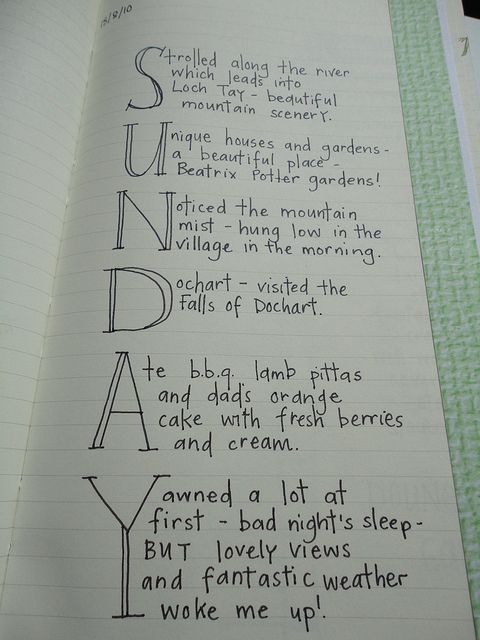 15/8/10
Strolled along the river
which leads into
Loch Tay - beautiful
mountain scenery.
Unique houses and gardens -
a beautiful place -
Beatrix Potter gardens!
Noticed the mountain
mist - hung low in the
village in the morning.
Dochart - visited the
Falls of Dochart.
Ate b.b.q. lamb pittas
and dad's orange
cake with fresh berries
and cream.
Yawned a lot at
first - bad night's sleep -
BUT lovely views
and fantastic weather
woke me up!